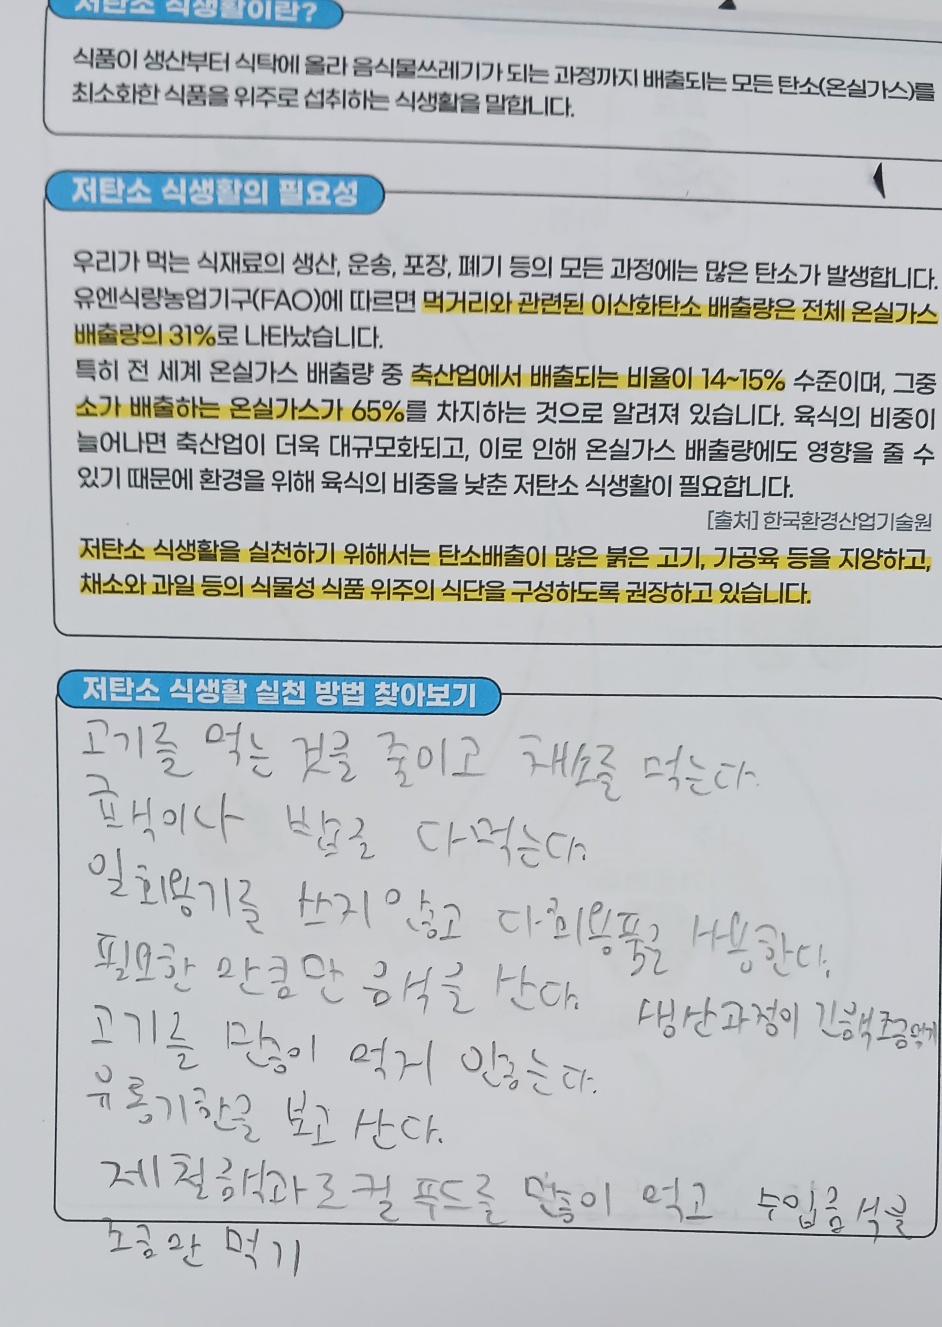 저탄소 식생활이란?
식품이 생산부터 식탁에 올라 음식물쓰레기가 되는 과정까지 배출되는 모든 탄소(온실가스)를
최소화한 식품을 위주로 섭취하는 식생활을 말합니다.
저탄소 식생활의 필요성
우리가 먹는 식재료의 생산, 운송, 포장, 폐기 등의 모든 과정에는 많은 탄소가 발생합니다.
유엔식량농업기구(FAO)에 따르면 먹거리와 관련된 이산화탄소 배출량은 전체 온실가스
배출량의 31%로 나타났습니다.
특히 전 세계 온실가스 배출량 중 축산업에서 배출되는 비율이 14~15% 수준이며, 그중
소가 배출하는 온실가스가 65%를 차지하는 것으로 알려져 있습니다. 육식의 비중이
늘어나면 축산업이 더욱 대규모화되고, 이로 인해 온실가스 배출량에도 영향을 줄 수
있기 때문에 환경을 위해 육식의 비중을 낮춘 저탄소 식생활이 필요합니다.
[출처] 한국환경산업기술원
저탄소 식생활을 실천하기 위해서는 탄소배출이 많은 붉은 고기, 가공육 등을 지양하고,
채소와 과일 등의 식물성 식품 위주의 식단을 구성하도록 권장하고 있습니다.
저탄소 식생활 실천 방법 찾아보기
고기를 먹는 것을 줄이고 채소를 먹는다.
급식이나 밥을 다먹는다.
일회용기를 쓰지 않고 다회용품을 사용한다.
필요한 만큼만 음식을 산다.
생산과정이 긴음식조금먹기
고기를 많이 먹지 않는다.
유통기한을 보고 산다.
제철음식과 로컬 푸드를 많이 먹고 수입음식을
조금만 먹기